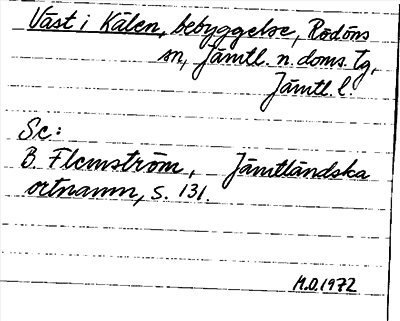 Väst i Kälen, bebyggelse, Rödöns
sn, Jämtl. n. doms. tg,
Jämtl. l.
Se:
B. Flemström, Jämtländska
ortnamn, s. 131.
M.O.1972